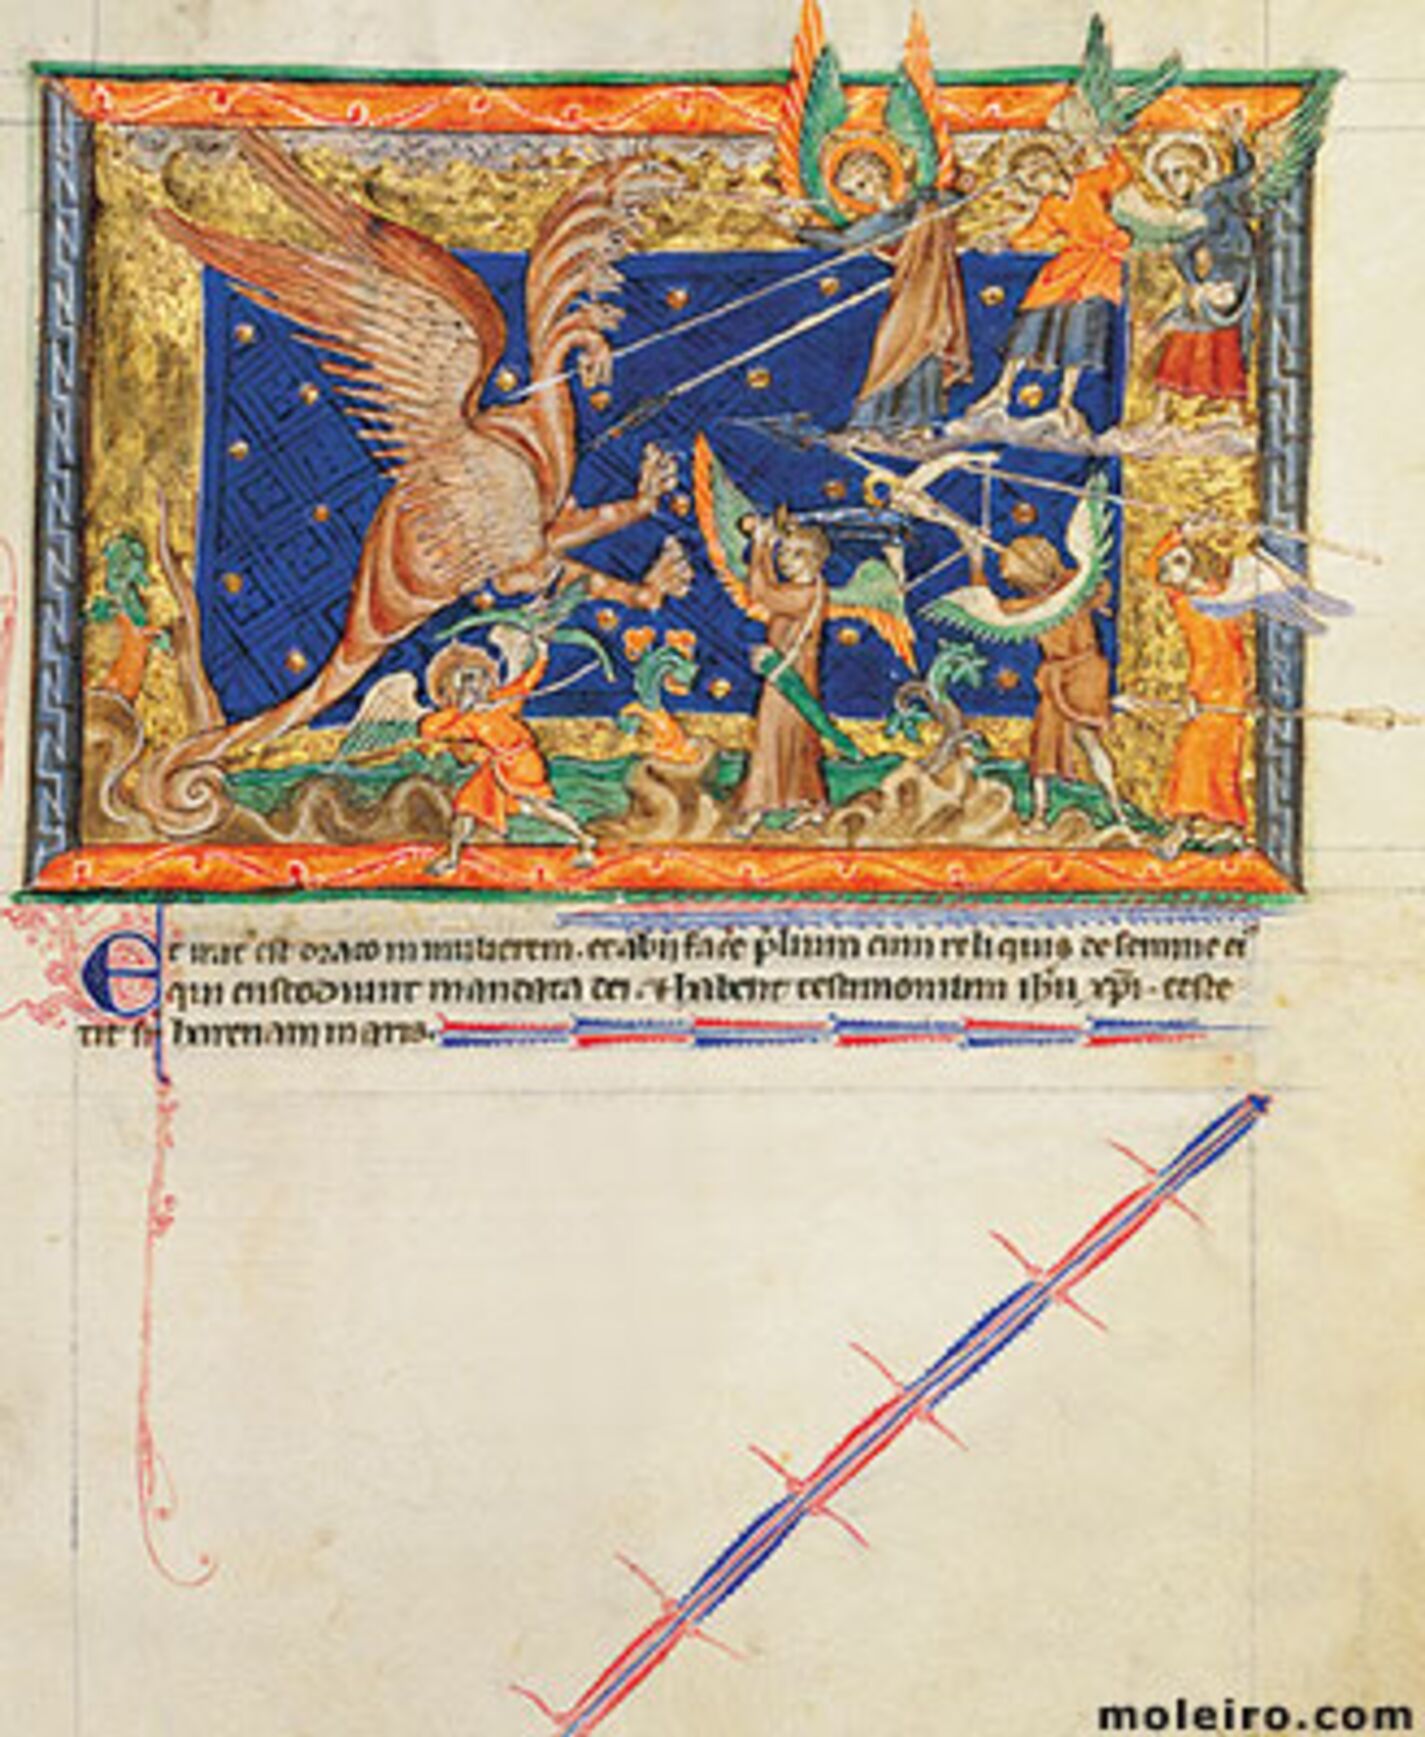 Et irat' est draco in mulierem. et abiit face p̄lium cum reliquis de semine ei'
qui custodiunt mandata dei. ⁊ habent testimonium ih̄u xp̄i. et ste
tit sr̄ harenam maris.
moleiro.com